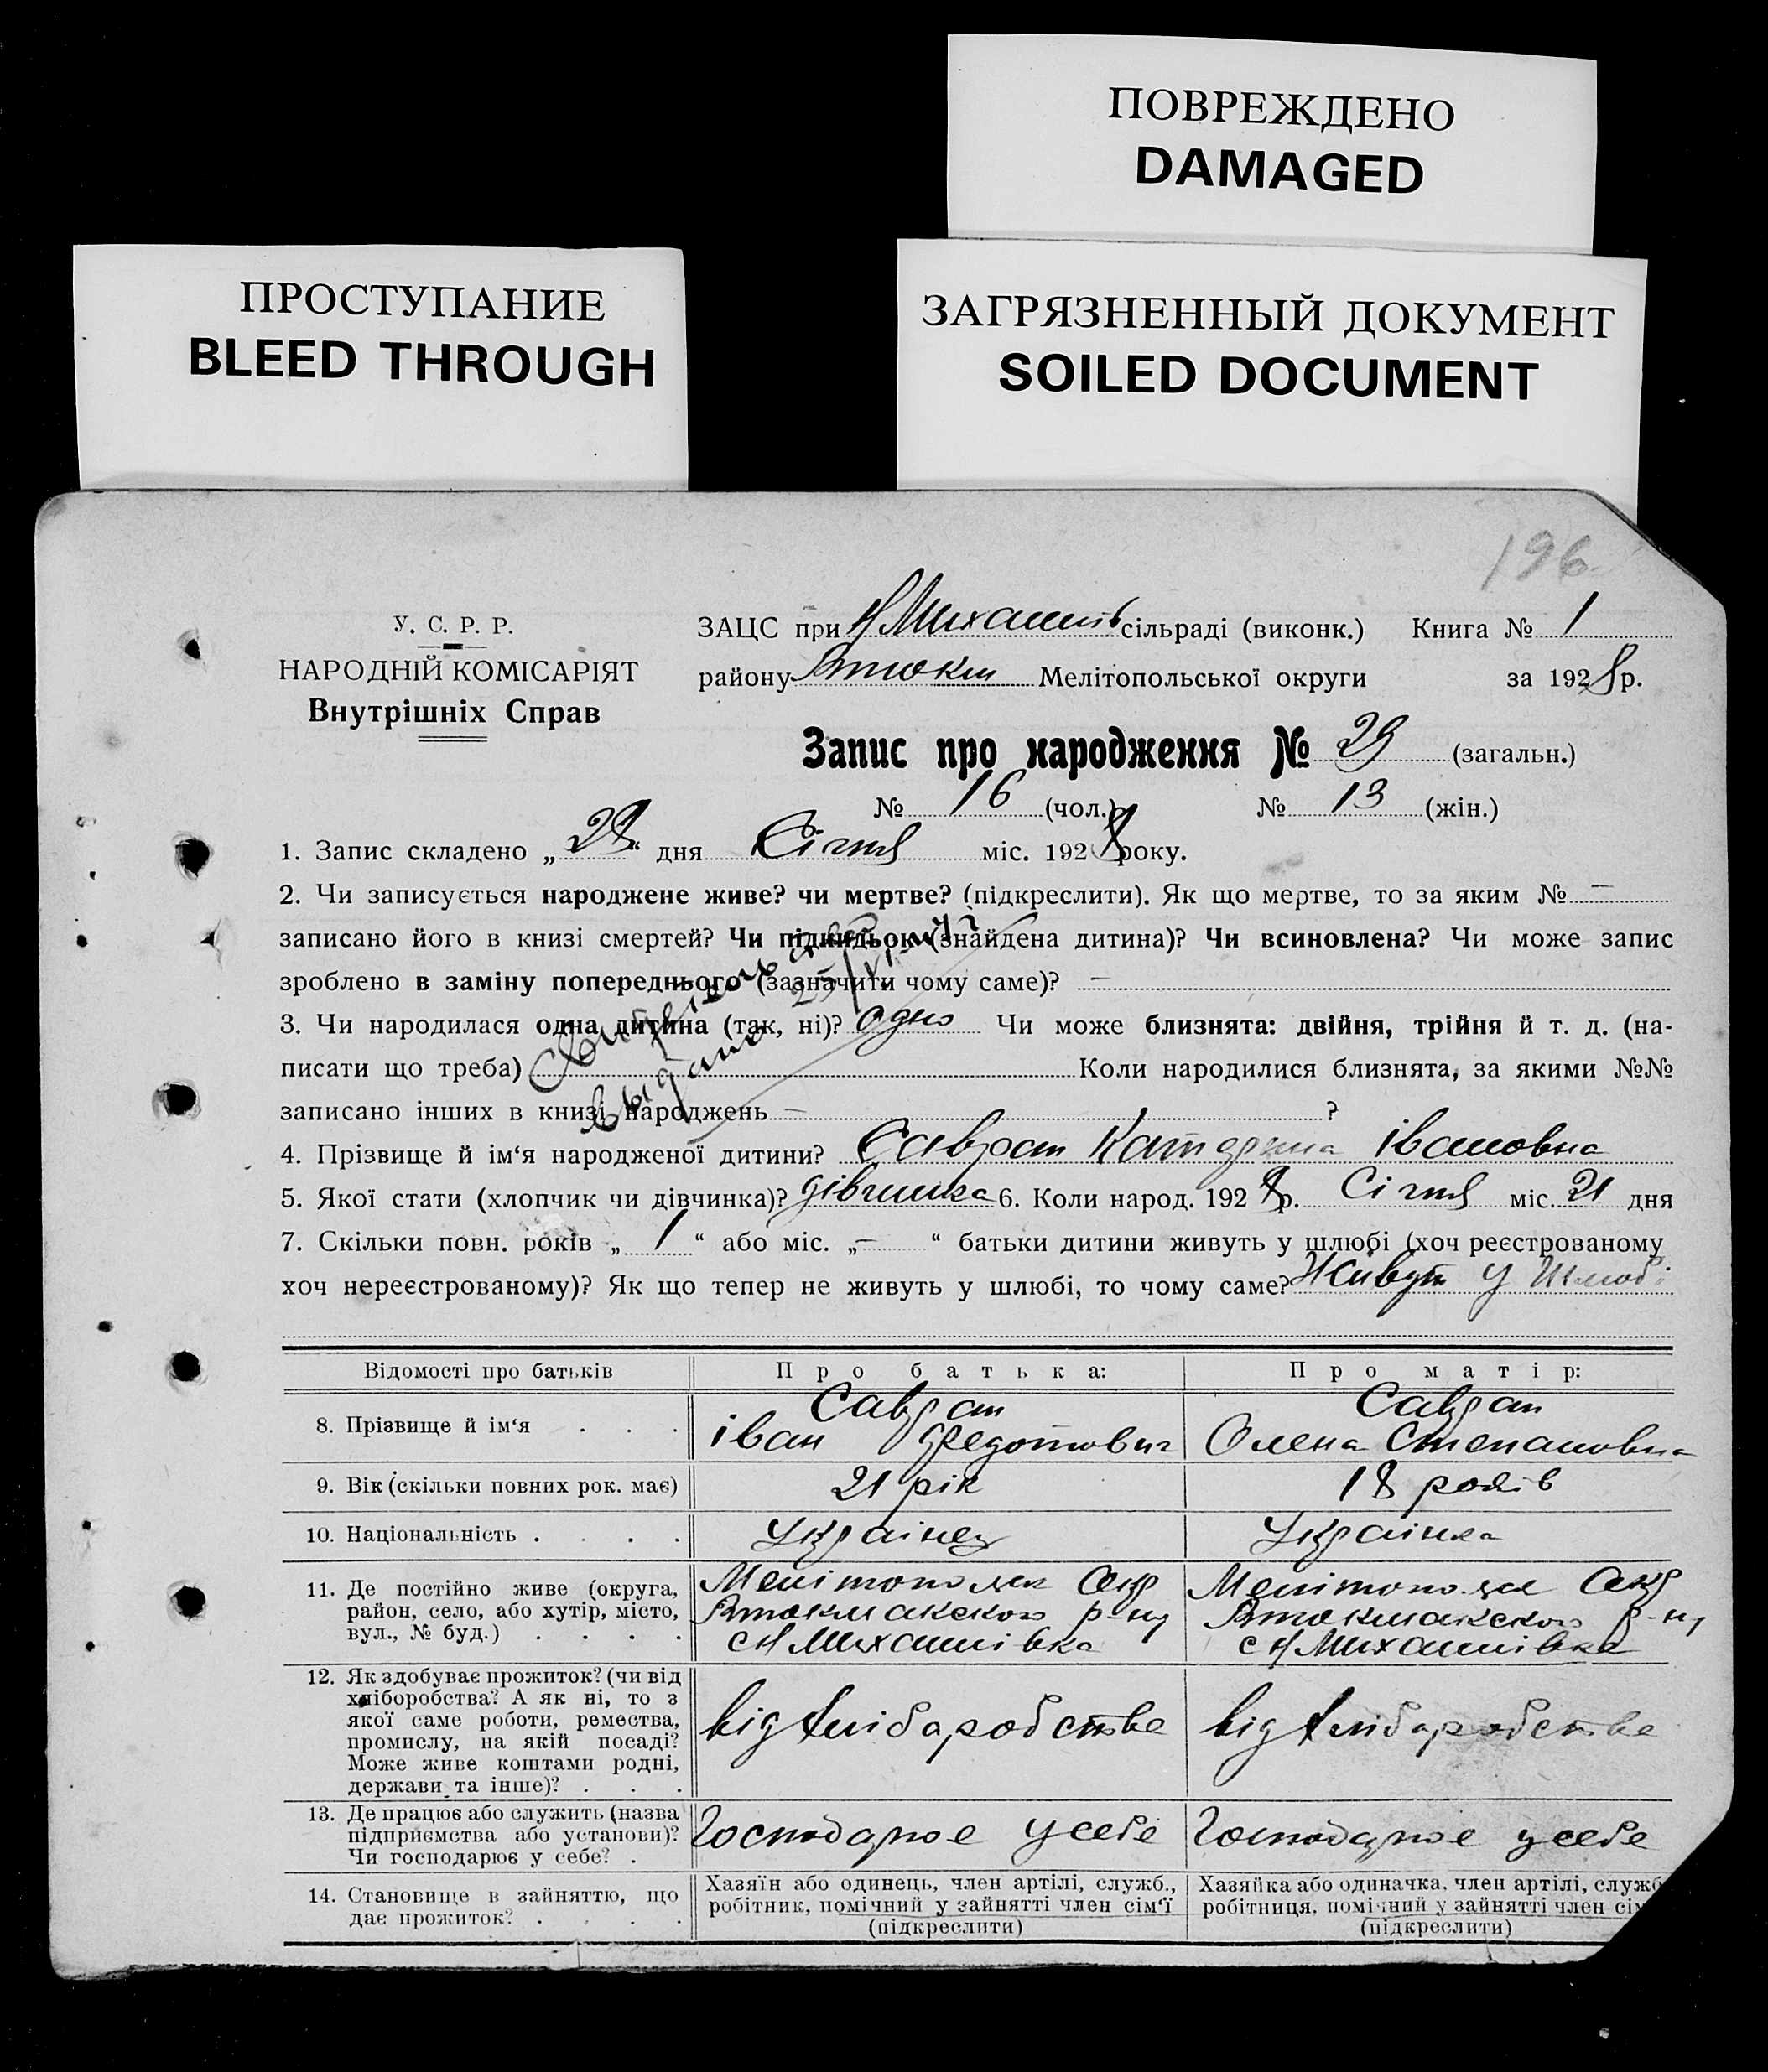 ПОВРЕЖДЕНО
DAMAGED
ПРОСТУПАНИЕ
BLEED THROUGH
ЗАГРЯЗНЕННЫЙ ДОКУМЕНТ
SOILED DOCUMENT
196
У. С. Р. Р.
НАРОДНІЙ КОМІСАРІЯТ
Внутрішніх Справ
ЗАЦС при Н Михайлів сільраді (виконк.) Книга № 1
району Втокм Мелітопольської округи за 1928 р.
Запис про народження № 29 (загальн.)
№ 16 (чол.) № 13 (жін.)
1. Запис складено „28“ дня Січня міс. 1928 року.
2. Чи записується народжене живе? чи мертве? (підкреслити). Як що мертве, то за яким № —
записано його в книзі смертей? Чи підкидьок (знайдена дитина)? Чи всиновлена? Чи може запис
зроблено в заміну попереднього (зазначити чому саме)? —
3. Чи народилася одна дитина (так, ні)? одно Чи може близнята: двійня, трійня й т. д. (на-
писати що треба) Коли народилися близнята, за якими №№
записано інших в книзі народжень — ?
выдано
4. Прізвище й ім‘я народженої дитини? Савран Катерина Івановна
5. Якої стати (хлопчик чи дівчинка)? дівчинка 6. Коли народ. 1928 р. Січня міс. 21 дня
7. Скільки повн. років „ 1 “ або міс. „ — “ батьки дитини живуть у шлюбі (хоч реєстрованому
хоч нереєстрованому)? Як що тепер не живуть у шлюбі, то чому саме? Живут у Шлюбі
Відомості про батьків Про батька: Про матір:
8. Прізвище й ім‘я . . . Савран Іван Федотович Савран Олена Степановна
9. Вік (скільки повних рок. має) 21 рік 18 років
10. Національність . . . . Українец Українка
11. Де постійно живе (округа, Мелітопольск Окр Мелітопольск Окр
район, село, або хутір, місто, Втокмакского р-ну Втокмакского р-ну
вул., № буд.) . . . . с Н Михайлівка с Н Михайлівка
12. Як здобуває прожиток? (чи від
хліборобства? А як ні, то з
якої саме роботи, ремества, від хлібаробства від хлібаробства
промислу, на якій посаді?
Може живе коштами родні,
держави та інше)? . . .
13. Де працює або служить (назва
підприємства або установи)? Господарює у себе Господарює у себе
Чи господарює у себе? .
14. Становище в зайняттю, що Хазяїн або одинець, член артілі, служб., Хазяйка або одиначка, член артілі, служб
дає прожиток? . . . . робітник, помічний у зайнятті член сім‘ї робітниця, помічний у зайнятті член сім
(підкреслити) (підкреслити)